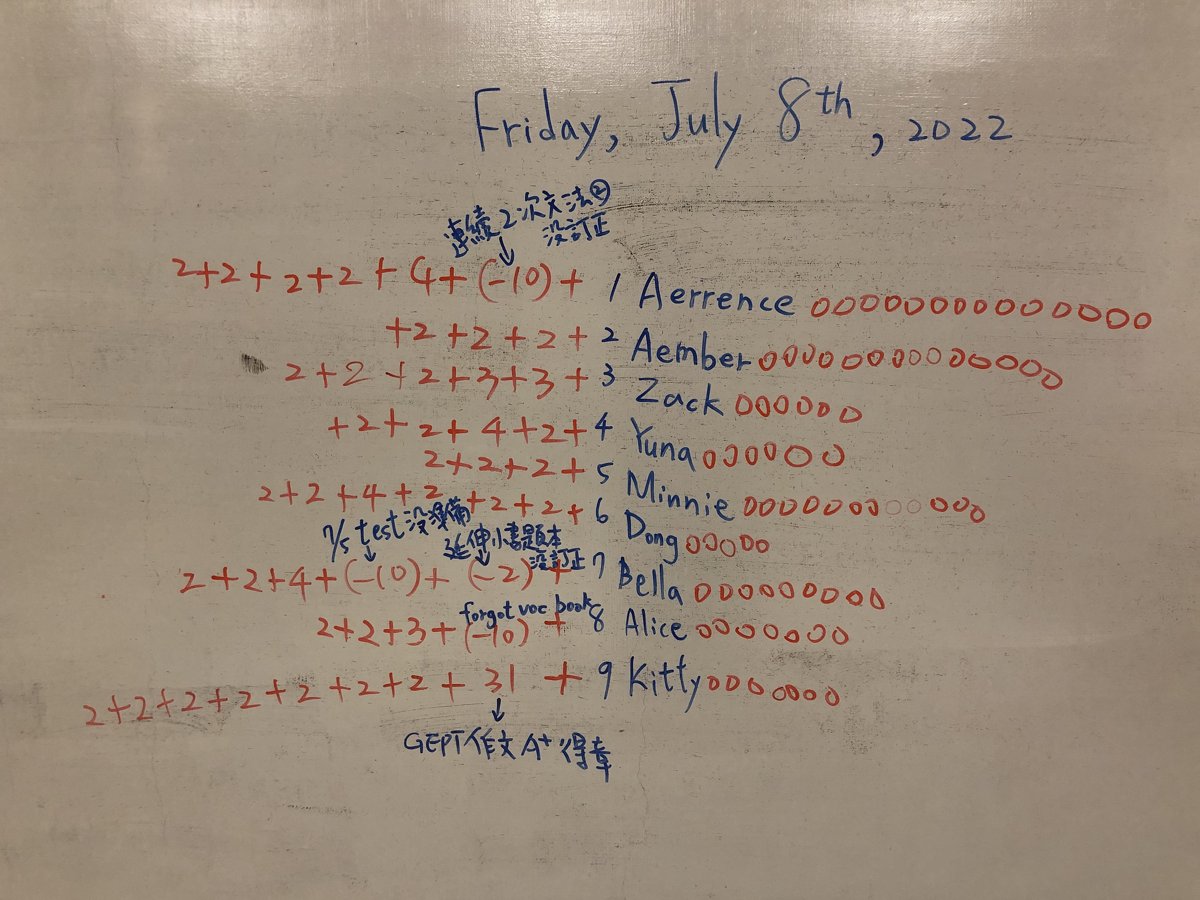 Friday, July 8th, 2022
連續2次文法②
沒訂正
2+2+2+2+4+(-10)+ 1 Aerrence ooooooooooooooo
+2+2+2+ 2 Aember oooooooooooooo
2+2+2+3+3+ 3 Zack oooooo
+2+2+4+2+ 4 Yuna oooooo
2+2+2+ 5 Minnie oooooooooooo
2+2+4+2+2+2+ 6 Dong ooooo
7/5 test 沒準備
延伸小書題本
沒訂正
2+2+4+(-10)+(-2)+ 7 Bella ooooooooo
forgot voc book
2+2+3+(-10)+ 8 Alice ooooooo
2+2+2+2+2+2+2+31+ 9 Kitty ooooooo
GEPT作文 A+ 得章